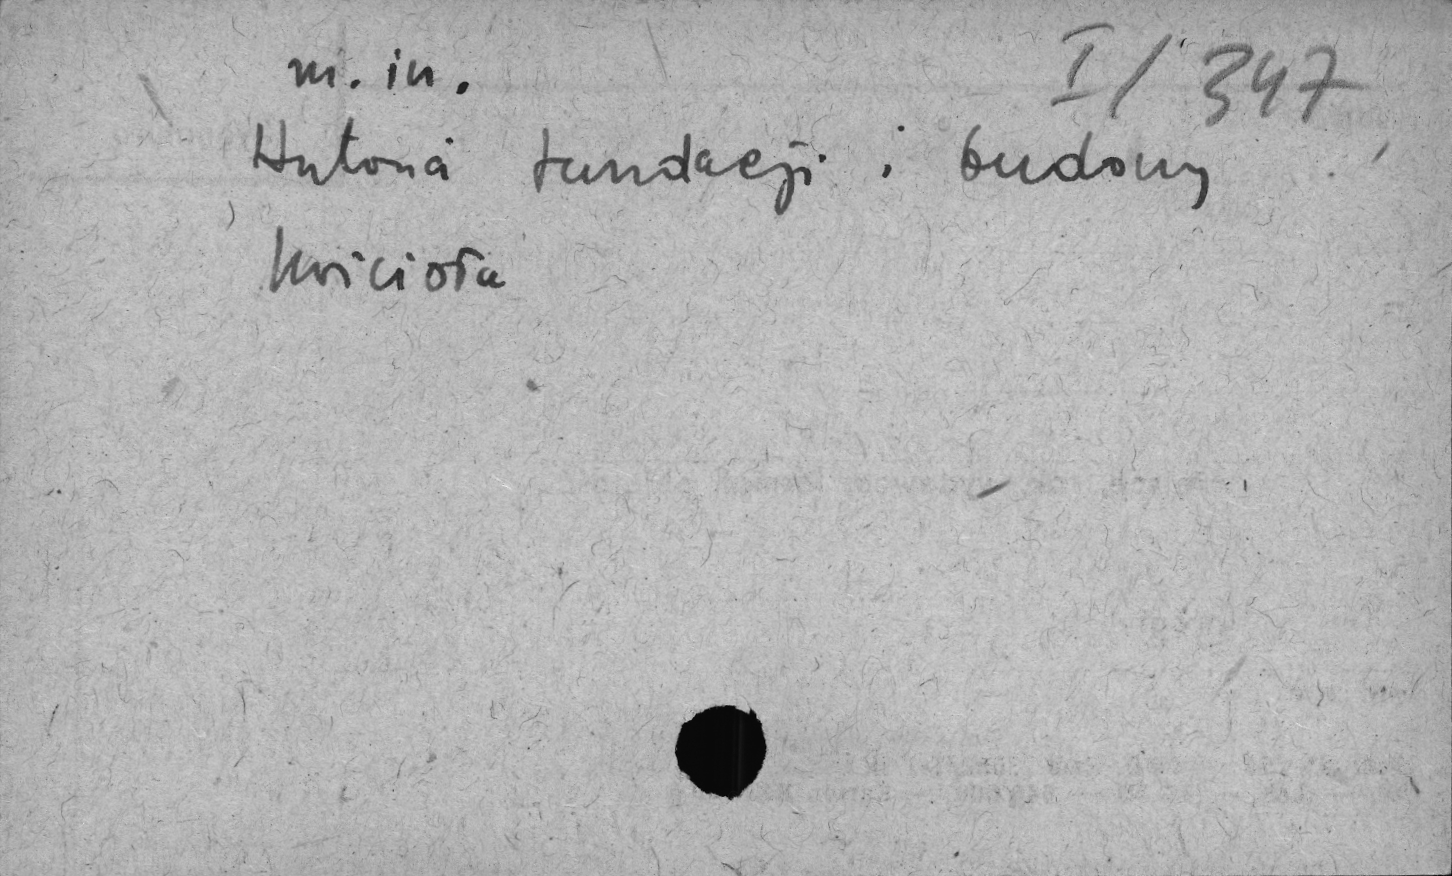 I/347
m. in.
Historia fundacji i budowy
kościoła